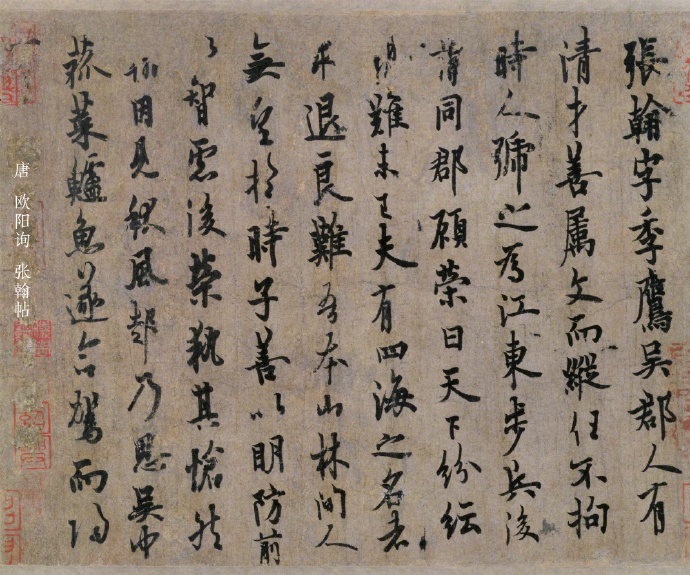 張翰字季鷹吳郡人有
清才善属文而縱任不拘
時人號之為江東步兵後
謂同郡顧榮曰天下紛紜
難未已夫有四海之名者
求退良難吾本山林間人
無望於時子善以明防前
以智慮後榮執其愴然
翰因見秋風起乃思吳中
菰菜鱸魚遂命駕而歸
唐 欧阳询 张翰帖